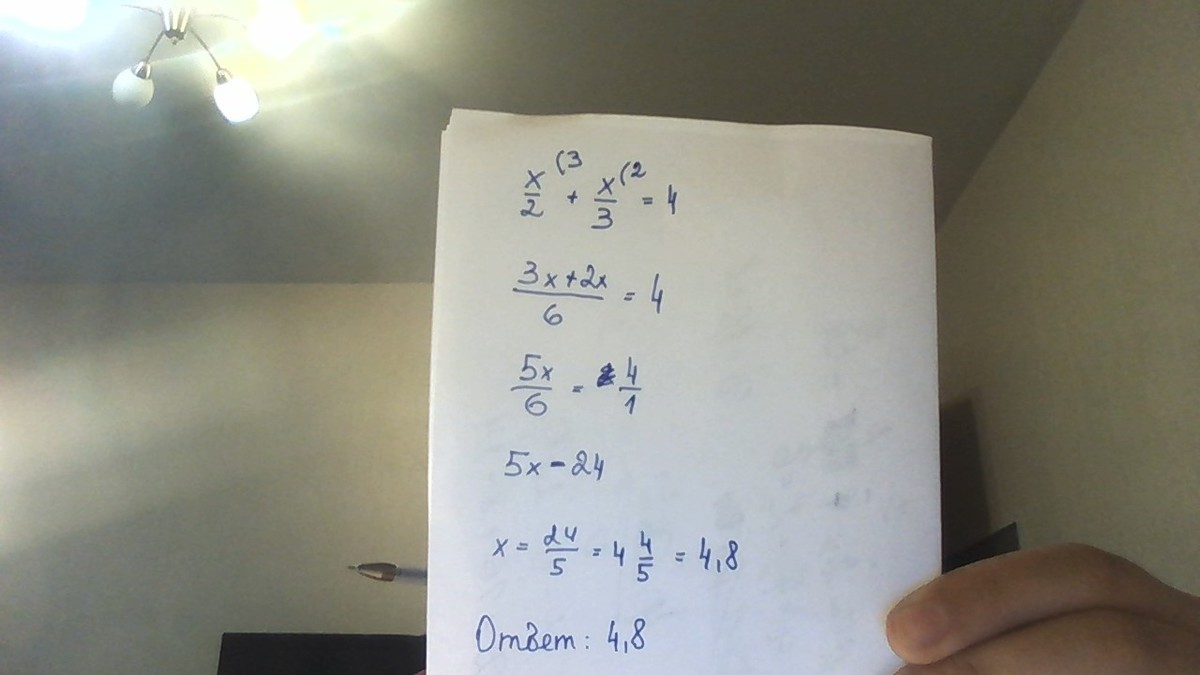 x/2 (3 + x/3 (2 = 4
3x+2x/6 = 4
5x/6 = 4/1
5x - 24
x = 24/5 = 4 4/5 = 4,8
Ответ: 4,8